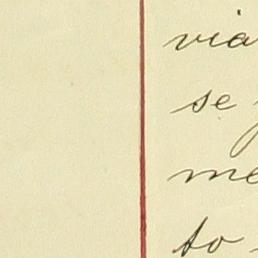 via
se
me
to